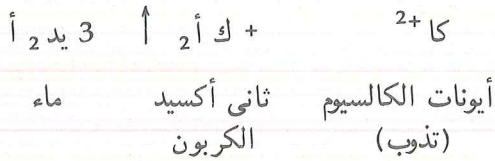 كا +2 + ك أ2 ↑ 3 يد2 أ
أيونات الكالسيوم ثانى أكسيد ماء
(تذوب) الكربون